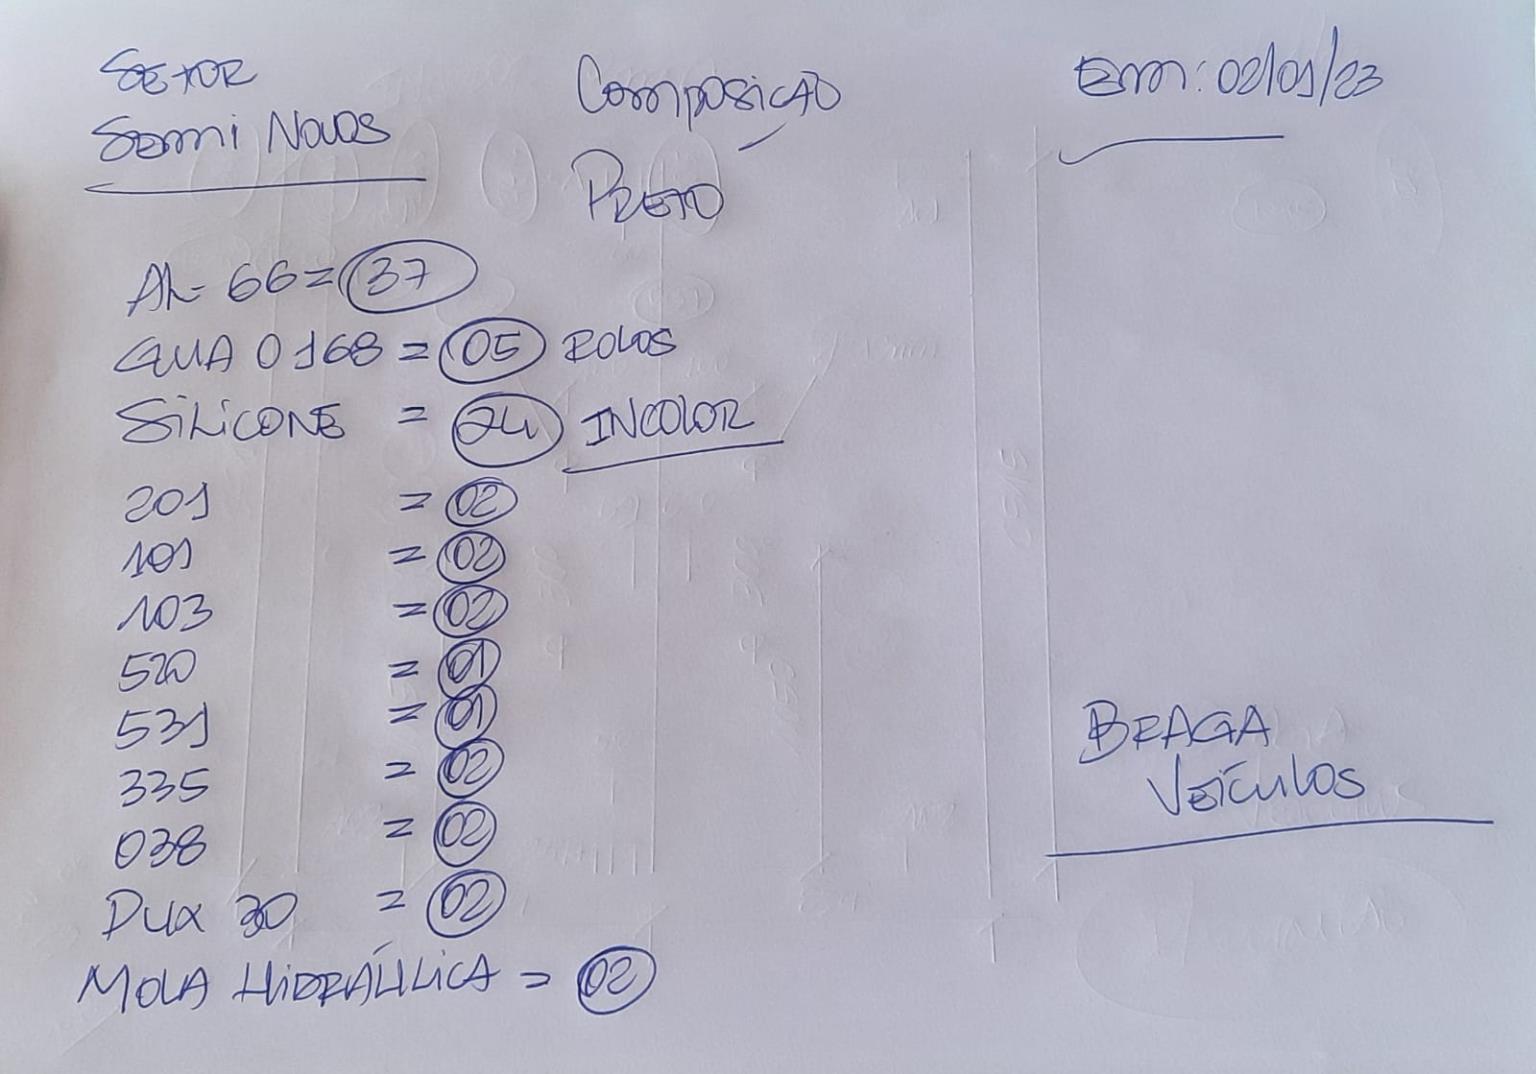 SETOR
SEMI NOVOS
COMPOSIÇÃO
PRETO
EM: 02/01/23
AL- 66 = 37
GUA 0168 = 05 ROLOS
SILICONE = 24 INCOLOR
201 = 02
101 = 02
103 = 02
520 = 01
531 = 01
335 = 02
038 = 02
DUX 30 = 02
MOLA HIDRÁULICA = 02
BRAGA
VEÍCULOS